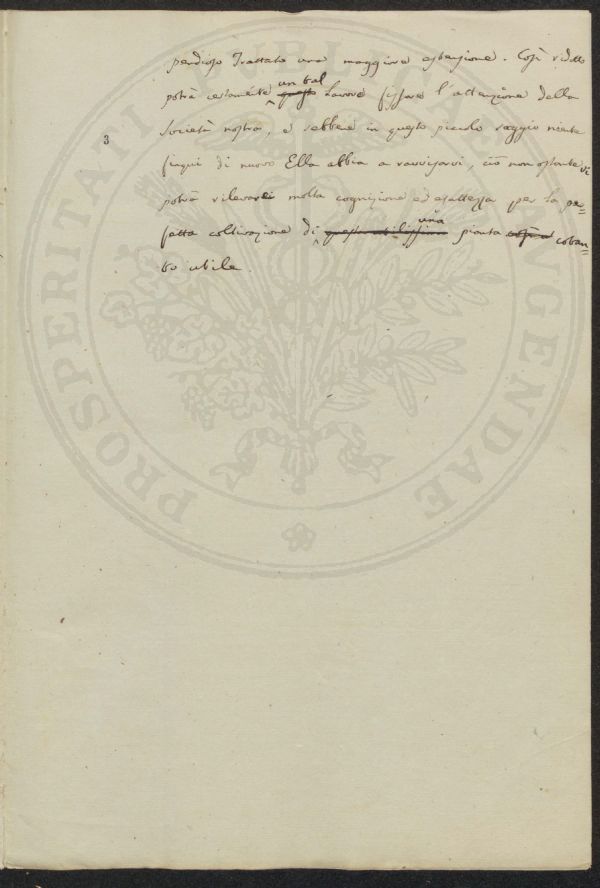 pendioso Trattato una maggiore estensione. Così ridotto
potrà certamente questo un tal Lavoro fissare l'attenzione della
Società nostra, e sebbene in questo piccolo saggio niente
3
finqui di nuovo Ella abbia a ravvisarvi, ciò non ostante vi
potrà rilevare molta cognizione ed esattezza per la per=
fetta coltivazione di questa utilissima una pianta cotan=
to utile.
PROSPERITATI PUBLICAE AUGENDAE